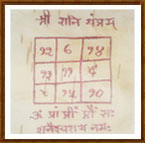 श्री शनि यंत्रम्
१२ ७ १४
१३ ११ ९
८ १५ १०
ॐ प्रां प्रीं प्रौं सः
शनैश्चराय नमः